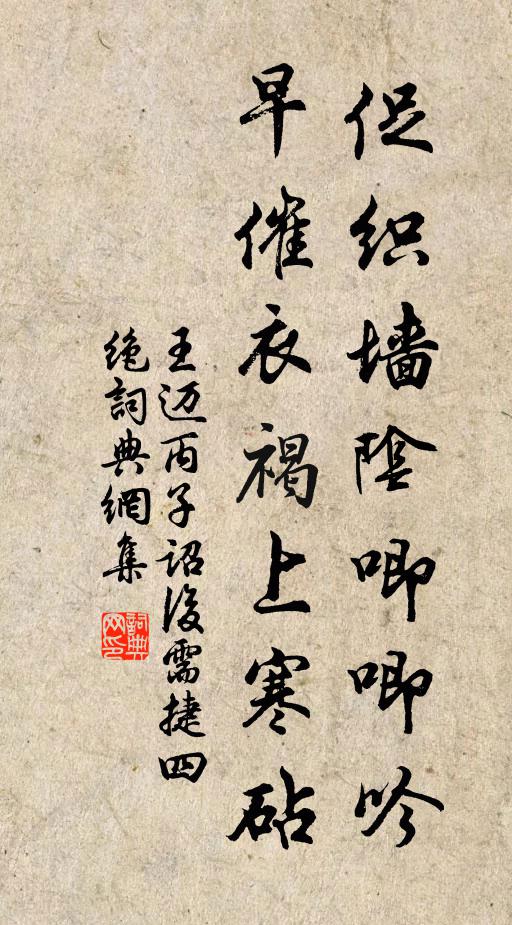 促织墙陰唧唧吟
早催衣褐上寒砧
王迈丙子诏後需捷四
绝詞典網集
詞典网印